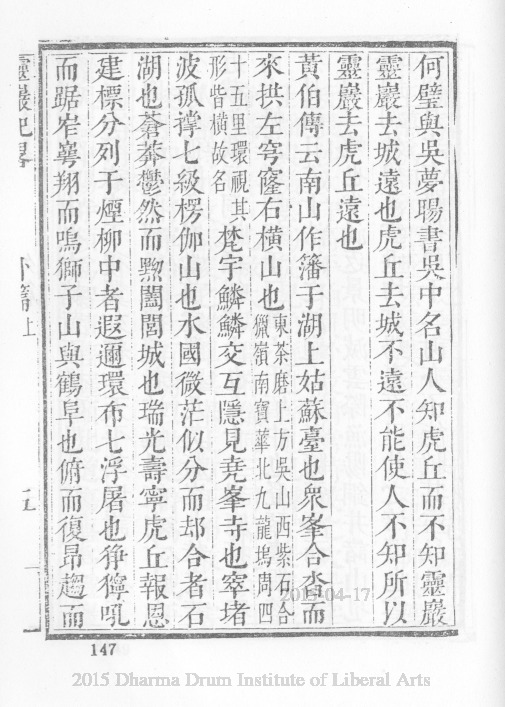 何璧與吳夢暘書吳中名山人知虎丘而不知靈巖
靈巖去城遠也虎丘去城不遠不能使人不知所以
靈巖去虎丘遠也
黃伯傳云南山作籓于湖上姑蘇臺也衆峯合沓而
來拱左穹窿右橫山也東茶磨上方吳山西紫石合獵嶺南寶華北九龍塢周四
十五里環視其形皆橫故名梵宇鱗鱗交互隱見堯峯寺也窣堵
波孤撑七級楞伽山也水國微茫似分而却合者石
湖也蒼莽鬱然而黝闔閭城也瑞光壽寧虎丘報恩
建標分列于煙柳中者遐邇環布七浮屠也猙獰吼
而踞岞㟧翔而鳴獅子山與鶴阜也俯而復昂趨而
靈巖記畧
外篇上
五
147
2015-04-17
2015 Dharma Drum Institute of Liberal Arts